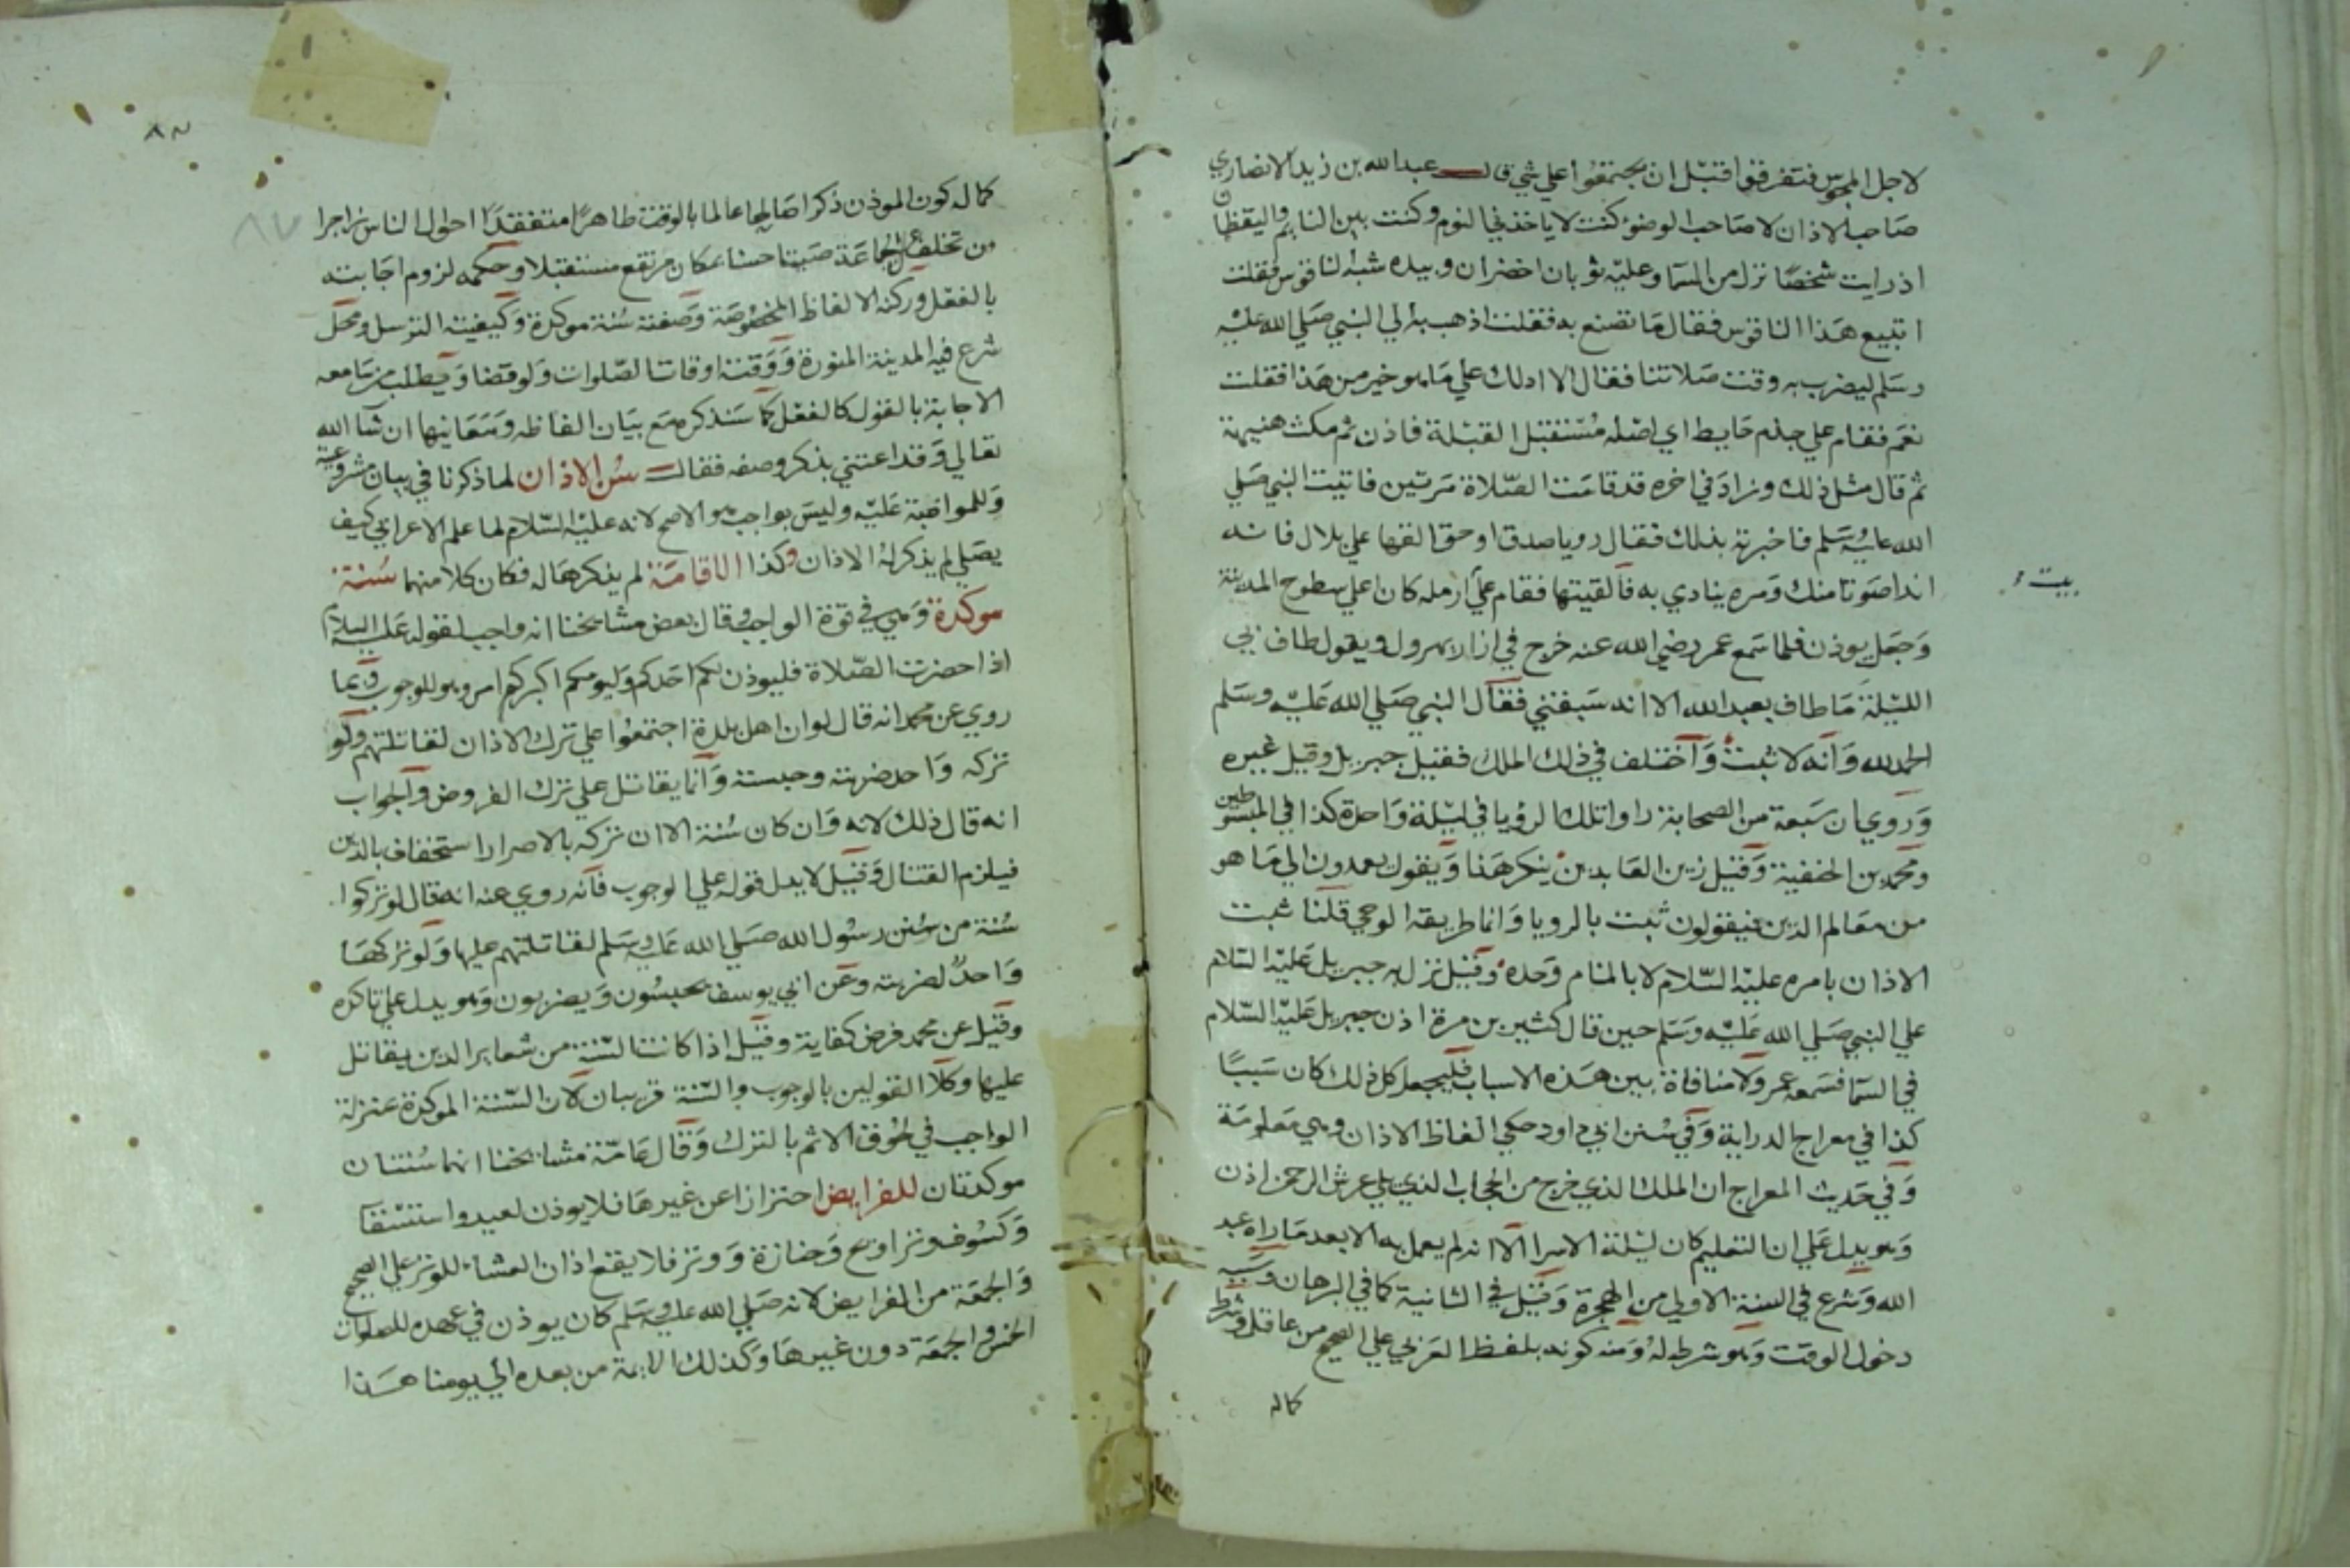 لاجل المجوس فتفرقوا قبل ان يجتمعوا علي شي قال عبدالله بن زيد الانصاري
صاحب الاذان لا صاحب الوضوء كنت لا ياخذني النوم وكنت بين النايم واليقظان
اذ رايت شخصا نزل من السما وعليه ثوبان اخضران وبيده شبه الناقوس فقلت
اتبيع هذا الناقوس فقال ما تصنع به فقلت اذهب به الي النبي صلي الله عليه
وسلم ليضرب به وقت صلاتنا فقال الا ادلك علي ما هو خير من هذا فقلت
نعم فقام علي جذم حايط اي اصله مستقبل القبلة فاذن ثم مكث هنيهة
ثم قال مثل ذلك وزاد في اخره قد قامت الصلاة مرتين فاتيت النبي صلي
الله عليه وسلم فاخبرته بذلك فقال رويا صدق او حق القها علي بلال فانه
اندا صوتا منك ومره ينادي به فالقيتها فقام علي ارملة كان اعلي سطوح المدينة
بيت
وجعل يوذن فلما سمع عمر رضي الله عنه خرج في ازار يهرول ويقول طاف بي
الليلة ما طاف بعبد الله الا انه سبقني فقال النبي صلي الله عليه وسلم
الحمد لله وانه لاثبت واختلف في ذلك الملك فقيل جبريل وقيل غيره
وروي ان سبعة من الصحابة راوا تلك الرؤيا في ليلة واحدة كذا في المبسوطين
ومحمد بن الحنفية وقيل زين العابدين ينكر هذا ويقول يعمدون الي ما هو
من معالم الدين فيقولون ثبت بالرويا وانما طريقه الوحي قلنا ثبت
الاذان بامره عليه السلام لا بالمنام وحده وقيل نزل به جبريل عليه السلام
علي النبي صلي الله عليه وسلم حين قال كثير بن مرة اذن جبريل عليه السلام
في السما فسمعه عمر ولا منافاة بين هذه الاسباب فليجعل كل ذلك كان سببا
كذا في معراج الدراية وفي سنن ابي داود حكي الفاظ الاذان وهي معلومة
وفي حديث المعراج ان الملك الذي خرج من الحجاب الذي يلي عرش الرحمن اذن
وهو يدل علي ان التعليم كان ليلة الاسرا الا انه لم يعمل به الا بعد ما راه عبد
الله وشرع في السنة الاولي من الهجرة وقيل في الثانية كما في البرهان وسببه
دخول الوقت وهو شرط له ومنه كونه بلفظ العربي علي الصحيح من عاقل وشرط
كماله
٨٢
كماله كون الموذن ذكرا صالحا عالما بالوقت طاهرا متفقدا احوال الناس زاجرا
من تخلف عن الجماعة صيتا حسنا بمكان مرتفع مستقبلا وحكمه لزوم اجابته
بالفعل وركنه الالفاظ المخصوصة وصفته سنة موكدة وكيفيته الترسل ومحل
شرع فيه المدينة المنورة ووقته اوقات الصلوات ولو قضا ويطلب من سامعه
الاجابة بالقول كالفعل كما سنذكره مع بيان الفاظه ومعانيها ان شا الله
تعالي وقد اعتني بذكر وصفه فقال سن الاذان لما ذكرنا في بيان مشروعيته
وللمواظبة عليه وليس بواجب هو الاصح لانه عليه السلام لما علم الاعرابي كيف
يصلي لم يذكر له الاذان وكذا الاقامة لم يذكرها له فكان كلا منهما سنة
موكدة وهي في قوة الواجب وقال بعض مشايخنا انه واجب لقوله عليه السلام
اذا حضرت الصلاة فليوذن لكم احدكم وليومكم اكبركم امر وهو للوجوب وبما
روي عن محمد انه قال لو ان اهل بلدة اجتمعوا علي ترك الاذان لقاتلتهم ولو
تركه واحد ضربته وحبسته وانما يقاتل علي ترك الفروض والجواب
انه قال ذلك لانه وان كان سنة الا ان تركه بالاصرار استخفاف بالدين
فيلزم القتال وقيل لا يدل قوله علي الوجوب فانه روي عنه انه قال لو تركوا
سنة من سنن رسول الله صلي الله عليه وسلم لقاتلتهم عليها ولو تركها
واحد لضربته وعن ابي يوسف يحبسون ويضربون وهو يدل علي تاكده
وقيل عن محمد فرض كفاية وقيل اذا كانت السنة من شعاير الدين يقاتل
عليها وكلا القولين بالوجوب والسنة قريبان لان السنة الموكدة بمنزلة
الواجب في لحوق الاثم بالترك وقال عامة مشايخنا انهما سنتان
موكدتان للفرايض احترازا عن غيرها فلا يوذن لعيد واستسقا
وكسوف وتراويح وجنازة ووتر فلا يقع اذان العشا للوتر علي الصحيح
والجمعة من الفرايض لانه صلي الله عليه وسلم كان يوذن في عهده للصلوات
الخمس والجمعة دون غيرها وكذلك الايمة من بعده الي يومنا هذا